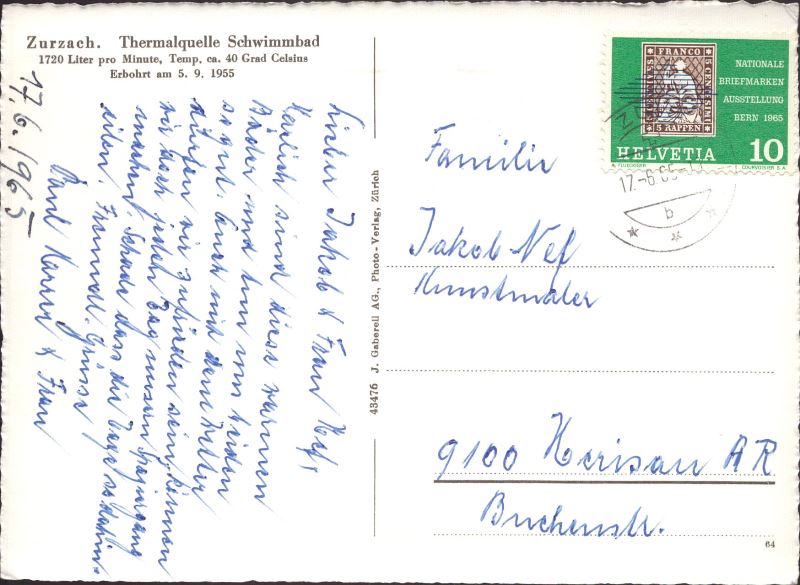 Zurzach. Thermalquelle Schwimmbad
1720 Liter pro Minute, Temp. ca. 40 Grad Celsius
Erbohrt am 5. 9. 1955
17.6.1965
Lieber Jakob & Frau Nef,
Herrlich sind diese warmen
Bäder und tun uns beiden
so gut. Auch mit dem Wetter
dürfen wir zufrieden sein, können
wir doch jeden Tag unsern Spaziergang
machen. Schade dass die Tage so dahin-
eilen. Freundl. Grüsse
Paul Karrer & Frau
43476 J. Gaberell AG., Photo-Verlag, Zürich
FRANCO
5 RAPPEN
NATIONALE
BRIEFMARKEN
AUSSTELLUNG
BERN 1965
HELVETIA 10
COURVOISIER S.A.
17.-6.65
b
Familie
Jakob Nef
Kunstmaler
9100 Herisau AR
Buchenstr.
64